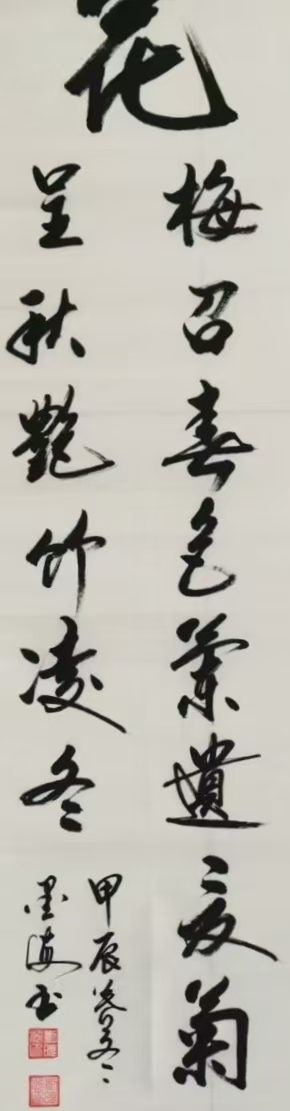 花
梅召春色兰遗夏菊
呈秋艳竹凌冬
甲辰暮冬
墨海书